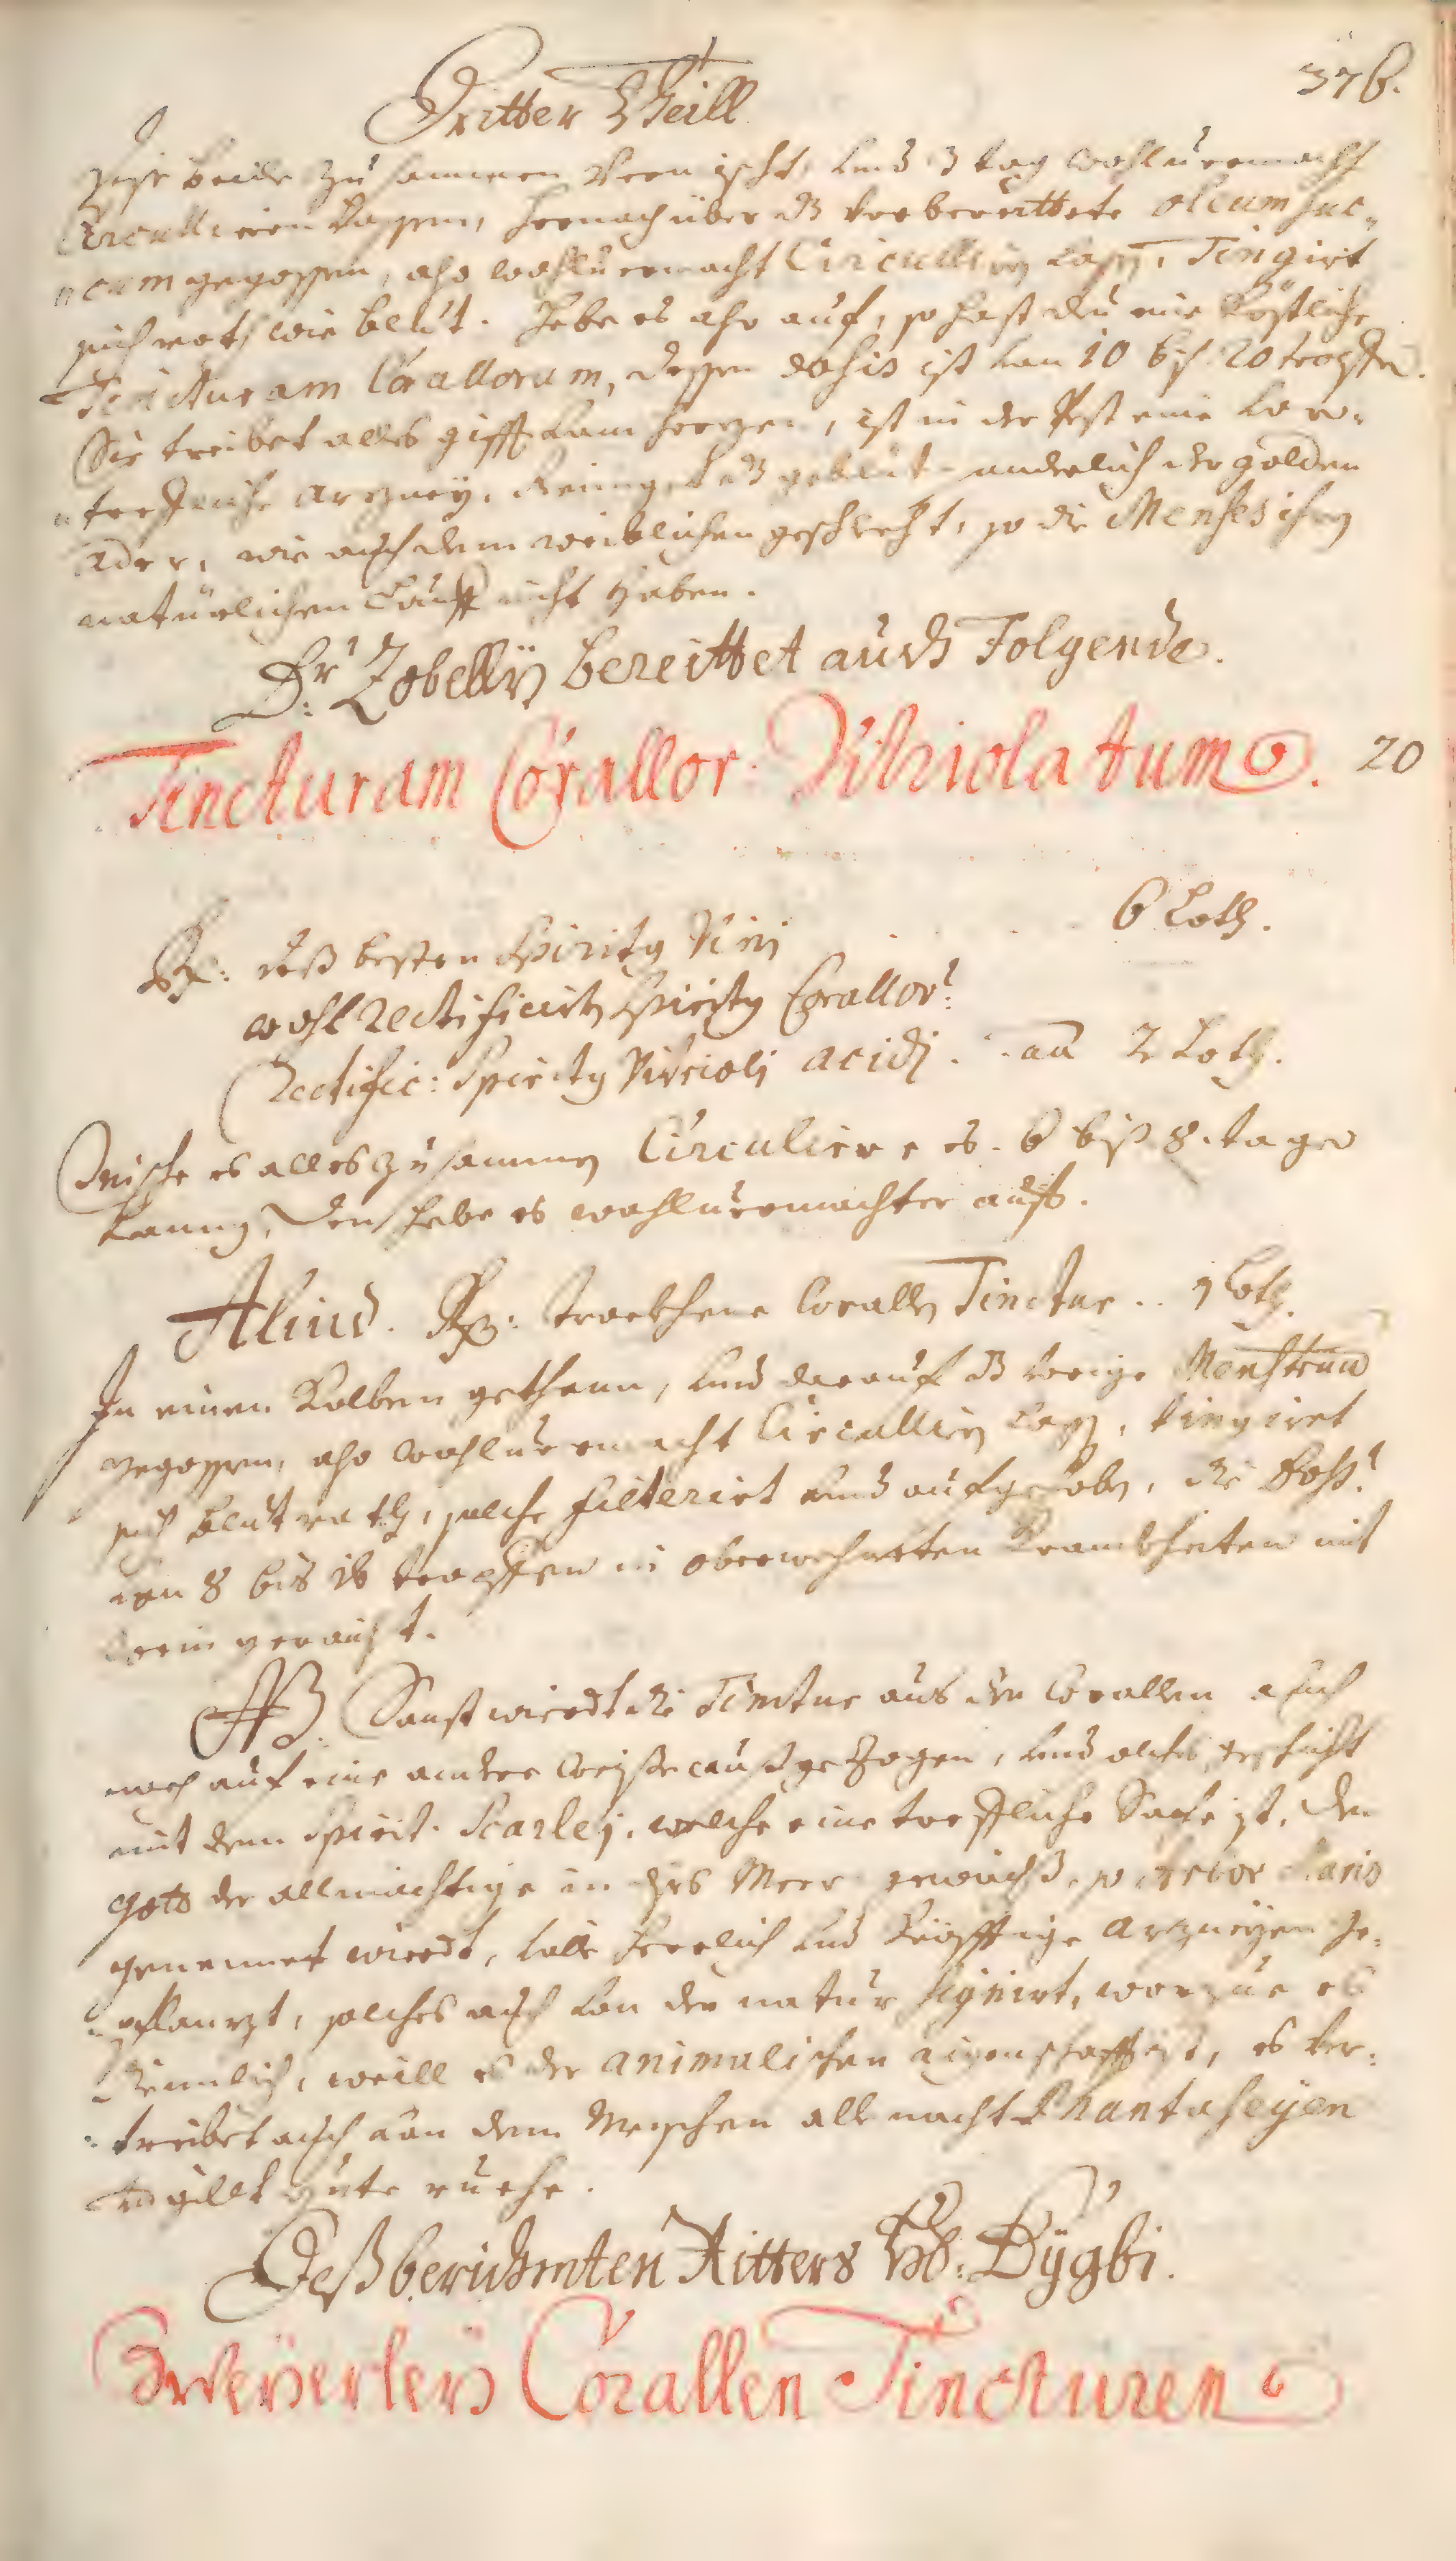 Dritter Theill
376.
Diese beide zusammen vermischt, und 3 tag wohlvermacht
Circulliren lassen, hernach über dz vorbereittete oleum suc-
ineum gegossen, also wohlvermacht Circulliren lassen, Tingirt
sich roth wie blut. Hebe es also auf, so hast du eine köstliche
Tincturam Corallorum, dessen dosis ist von 10 biß 20 tropffen.
Sie treibet alles gifft vom herzen, ist in der Pest eine vor-
treffliche arzney, Reiniget dz geblüt der golden
Ader, wie auch dem weiblichen geschlecht, so die Menses ihren
natürlichen Lauff nicht haben.
Dr: Zobelly bereittet auch Folgende.
Tincturam Corallor: Vitriolatum. 20
Rx: deß besten Spiritus Vini 6 Loth.
wohl Rectificirten Spiritus Corallor:
Rectific: Spiritus Vitrioli acidi . . aa 2 Loth.
Mische es alles zusammen Circuliere es 6 biß 8. tage
lanng, den hebe es wohlvermachter auff.
Aliud. Rx: trockhene Corallen Tinctur .. 1 Loth.
In einen Kolben gethann, und darauf dz vorige Menstruum
gegossen, also wohlvermacht Circulliren lassen, tingiret
sich blutroth, solche filterirt und aufgehoben, die Dosis
von 8 bis 16 tropffen in oberwehnetten Krankheiten mit
wein gebraucht.
NB. Sonst wierdt die Tinctur aus den Corallen auch
noch auf eine andere weiße außgezogen, und solches geschicht
mit dem Spirit. Scarlej, welche eine treffliche Sache ist, den
Gott der allmächtige in dis Meer gewächß, so Arbor Maris
genennet wierdt, volle herrlich und kräfftige arzneyen ge-
pflanzt, solches auch von der natur signirt, worzue es
dienlich, weill es der animalischen aigenschafft ist, es ver-
treibet auch von dem Menschen alle nacht Phantaseyen
gute ruehe.
Deß berühmten Ritters Hr: Dÿgbi.
Zweÿerleÿ Corallen Tincturen